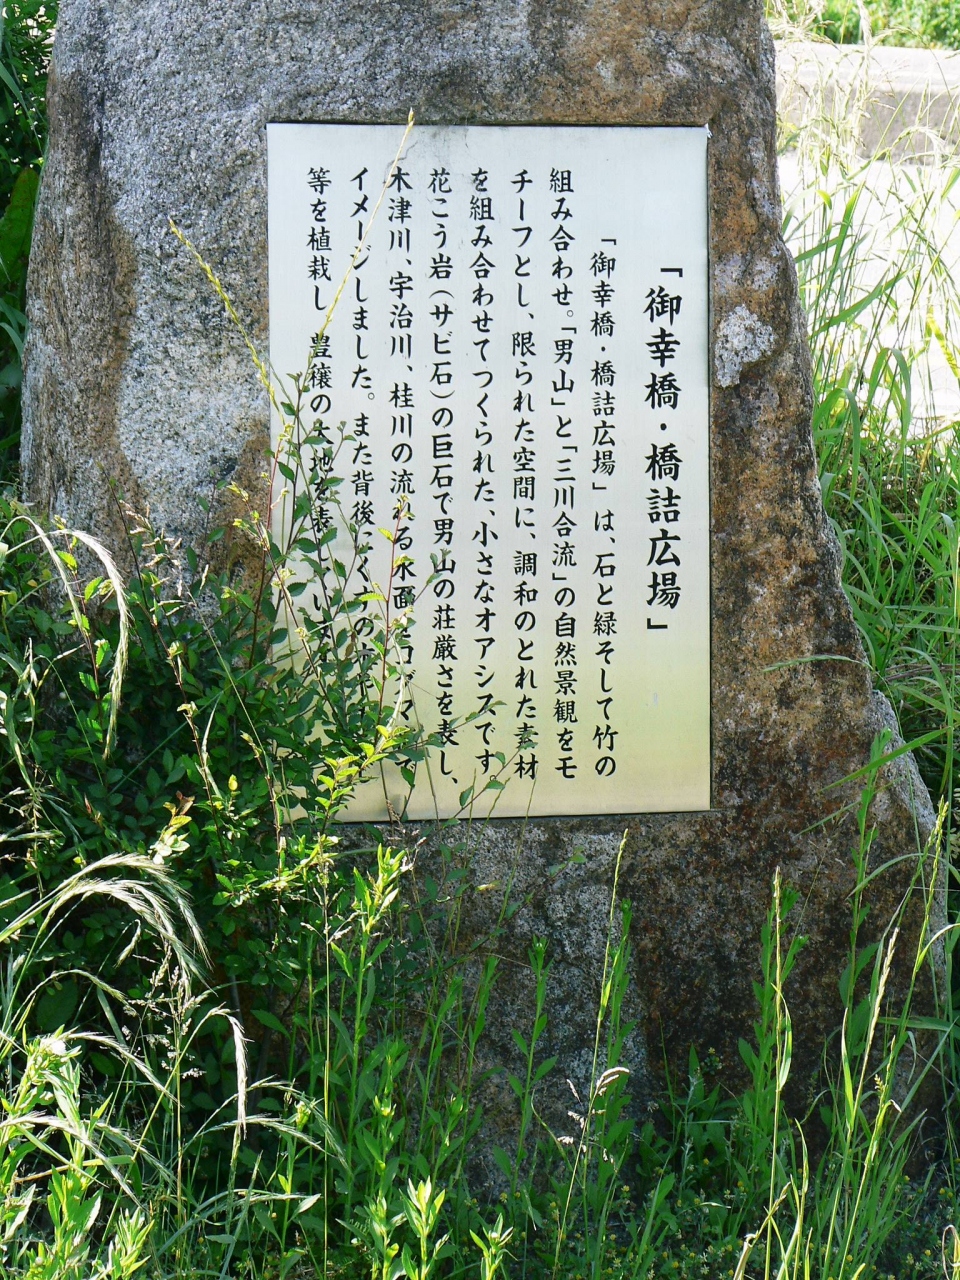 「御幸橋・橋詰広場」
「御幸橋・橋詰広場」は、石と緑そして竹の
組み合わせ。「男山」と「三川合流」の自然景観をモ
チーフとし、限られた空間に、調和のとれた素材
を組み合わせてつくられた、小さなオアシスです
花こう岩(サビ石)の巨石で男山の荘厳さを表し、
木津川、宇治川、桂川の流れる水面をコグマ
イメージしました。また背後に
等を植栽し、豊穣の大地を表